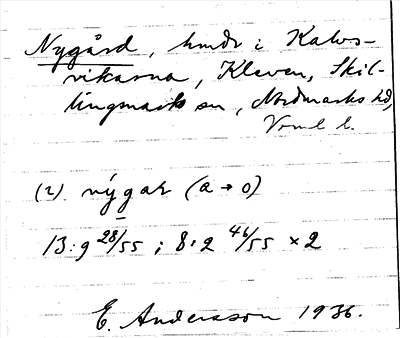 Nygård, hmdr i Kalvs-
vikarna, Kleven, Skil-
lingmark sn, Nordmarks hd,
Verml l.
(2) nýgar (a→o)
13:9 28/55; 8:2 46/55 × 2
E. Andersson 1936.